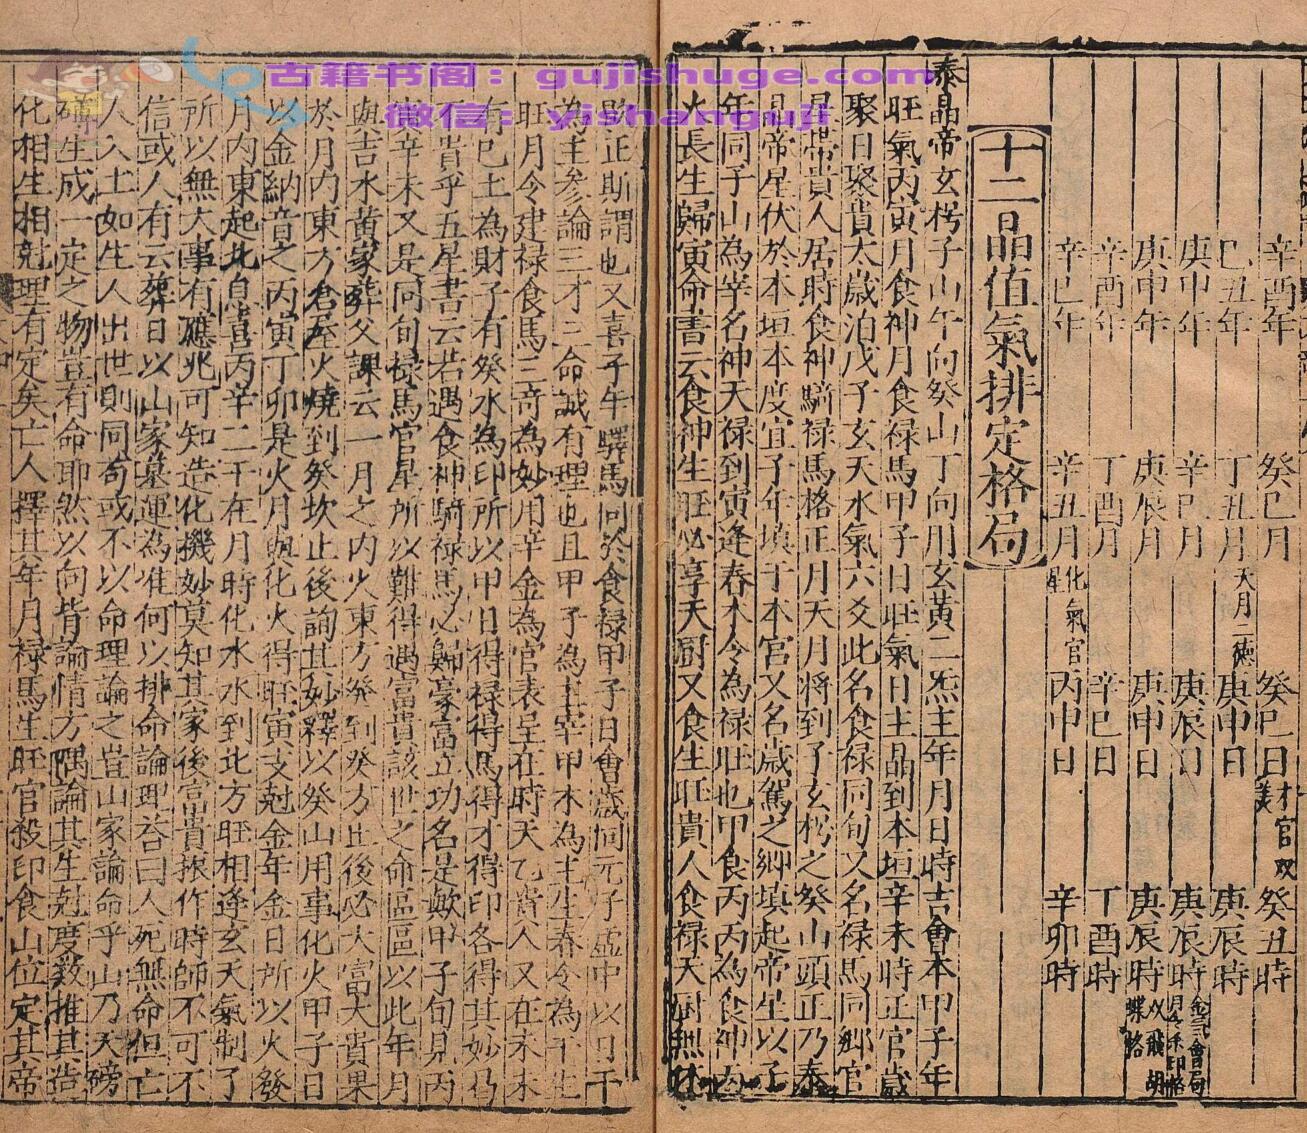 古籍书阁：gujishuge.com
微信：yishanguji
辛酉年 癸巳月 癸巳日 才官双美 癸丑時
己丑年 丁丑月 天月二德 庚申日 庚辰時
庚申年 辛巳月 庚辰日 庚辰時
庚申年 庚辰月 庚申日 庚辰時 以飛胡蝶格
辛酉年 丁酉月 辛巳日 丁酉時
辛巳年 辛丑月 化氣官星 丙申日 辛卯時
十二晶值氣排定格局
泰晶帝玄枵子山午向癸山丁向用玄黃二炁主年月日時吉會本甲子年
旺氣丙寅月食神月食禄馬甲子日旺氣日主晶到本垣辛未時正官歲
聚日聚貴太歲泊戊子玄天水氣六爻此名食禄同旬又名禄馬同鄉官
星帶貴人居時食神騎禄馬格正月天月將到子玄枵之癸山頭正乃泰
晶帝星伏於本垣本度宜子年填于本宮又名歲駕之鄉填起帝星以子
年同子山為宰名神天禄到寅逢春木令為禄旺也甲食丙丙為食神丙
火長生歸寅命書云食神生旺必享天厨又食生旺貴人食禄天厨無休
歟正斯謂也又喜子午驛馬同於食禄甲子日會歲同元子虛中以日干
為主參論三才二命誠有理也且甲子為主宰甲木為主生春令為干生
旺月令建禄食馬三奇為妙用辛金為官表呈在時天乙貴人又在未未
有己土為財子有癸水為印所以甲日得禄得馬得才得印各得其妙乃
不貴乎五星書云若遇食神騎禄馬必歸豪富立功名是歟甲子旬見丙
寅辛未又是同旬禄馬官星所以難得遇富貴該世之命區區以此年月
與吉水黃家葬父課云一月之內火東方發到癸方止後必大富大貴果
於月內東方倉屋火燒到癸坎止後詢其妙釋以癸山用事化火甲子日
以金納音之丙寅丁卯是火月與化火得旺寅支尅金年金日所以火發
月內東起北息喜丙辛二干在月時化水水到北方旺相逢玄天氣制了
所以無大事有應兆可知造化機妙莫知其家後富貴振作時師不可不
信或人有云葬日以山家墓運為准何以排命論理答曰人死無命但亡
人入土如生人出世則同苟或不以命理論之豈山家論命乎山乃天磅
礴生成一定之物豈有命耶然以向背論情方隅論其生尅度數推其造
化相生相尅理有定矣亡人擇其年月禄馬生旺官殺印食山位定其帝